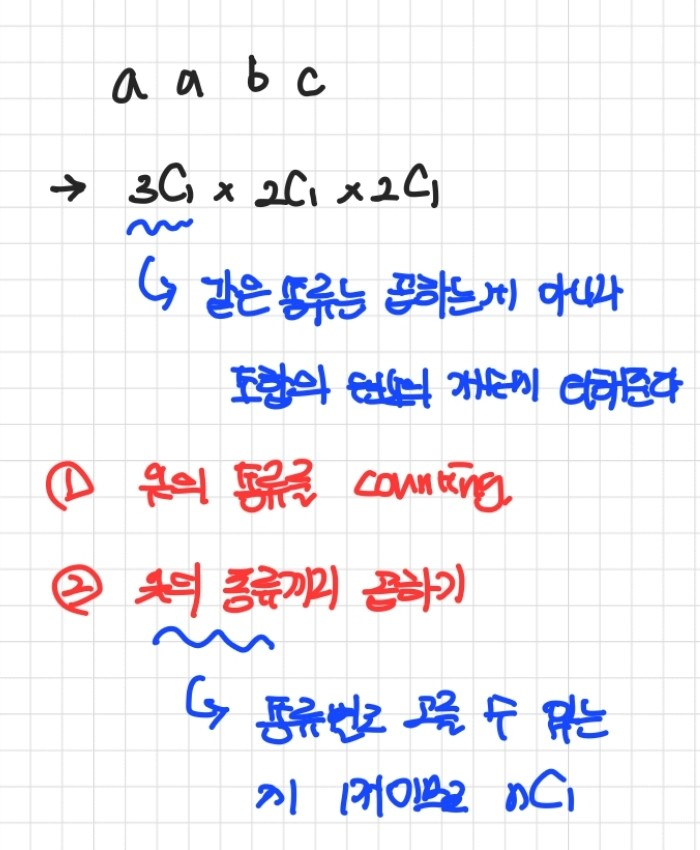 a a b c
→ 3C1 x 2C1 x 2C1
↳ 같은 종류는 곱하는게 아니라
조합의 개수에 더해준다
① 옷의 종류를 counting
② 옷의 종류끼리 곱하기
↳ 종류별로 고를 수 있는
게 1개이므로 nC1